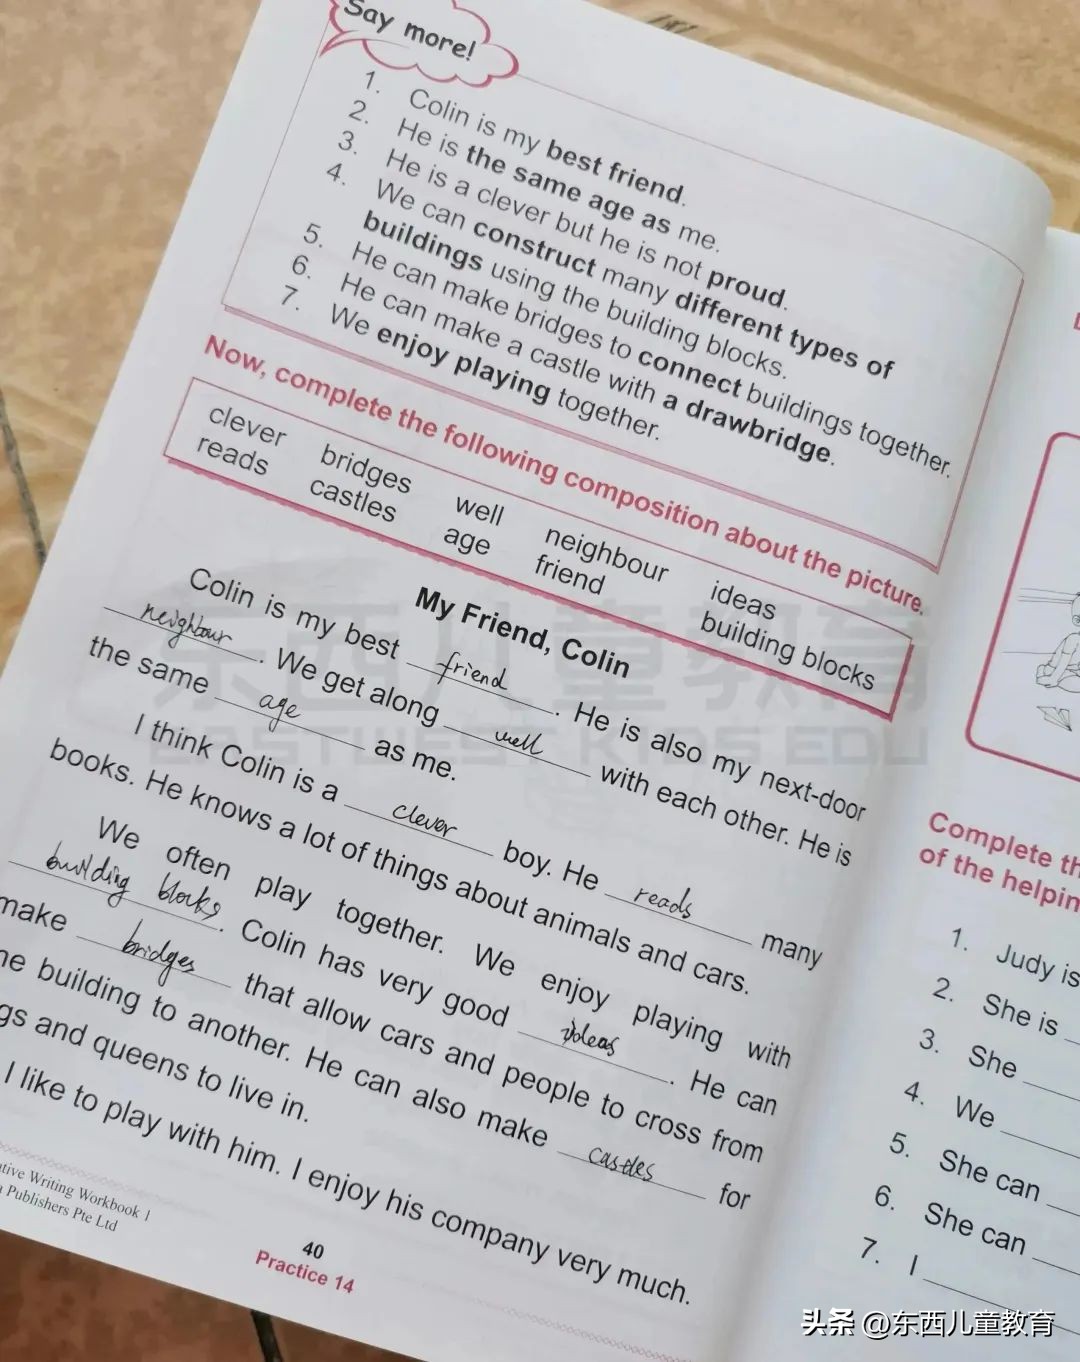 Say more!
1. Colin is my best friend.
2. He is the same age as me.
3. He is a clever but he is not proud.
4. We can construct many different types of
buildings using the building blocks.
5. He can make bridges to connect buildings together.
6. He can make a castle with a drawbridge.
7. We enjoy playing together.
Now, complete the following composition about the picture.
clever bridges well neighbour ideas
reads castles age friend building blocks
My Friend, Colin
Colin is my best friend. He is also my next-door
neighbour. We get along well with each other. He is
the same age as me.
I think Colin is a clever boy. He reads many
books. He knows a lot of things about animals and cars.
We often play together. We enjoy playing with
building blocks. Colin has very good ideas. He can
make bridges that allow cars and people to cross from
ne building to another. He can also make castles for
gs and queens to live in.
I like to play with him. I enjoy his company very much.
ative Writing Workbook 1
Publishers Pte Ltd
40
Practice 14
Complete th
of the helpin
1. Judy is
2. She is
3. She
4. We
5. She can
6. She can
7. I
东西儿童教育
EASTWEST KIDS EDU
头条 @东西儿童教育